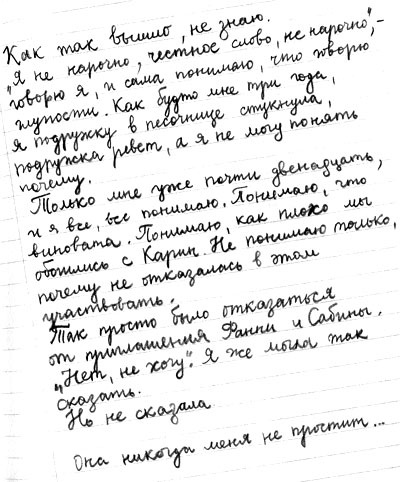 Как так вышло, не знаю.
"Я не нарочно, честное слово, не нарочно",-
говорю я, и сама понимаю, что говорю
глупости. Как будто мне три года,
я подружку в песочнице стукнула,
подружка ревет, а я не могу понять
почему.
Только мне уже почти двенадцать,
и я все, все понимаю. Понимаю, что
виновата. Понимаю, как плохо мы
обошлись с Карин. Не понимаю только,
почему не отказалась в этом
участвовать.
Так просто было отказаться
от приглашения Фанни и Сабины.
"Нет, не хочу". Я же могла так
сказать.
Но не сказала.
Она никогда меня не простит...